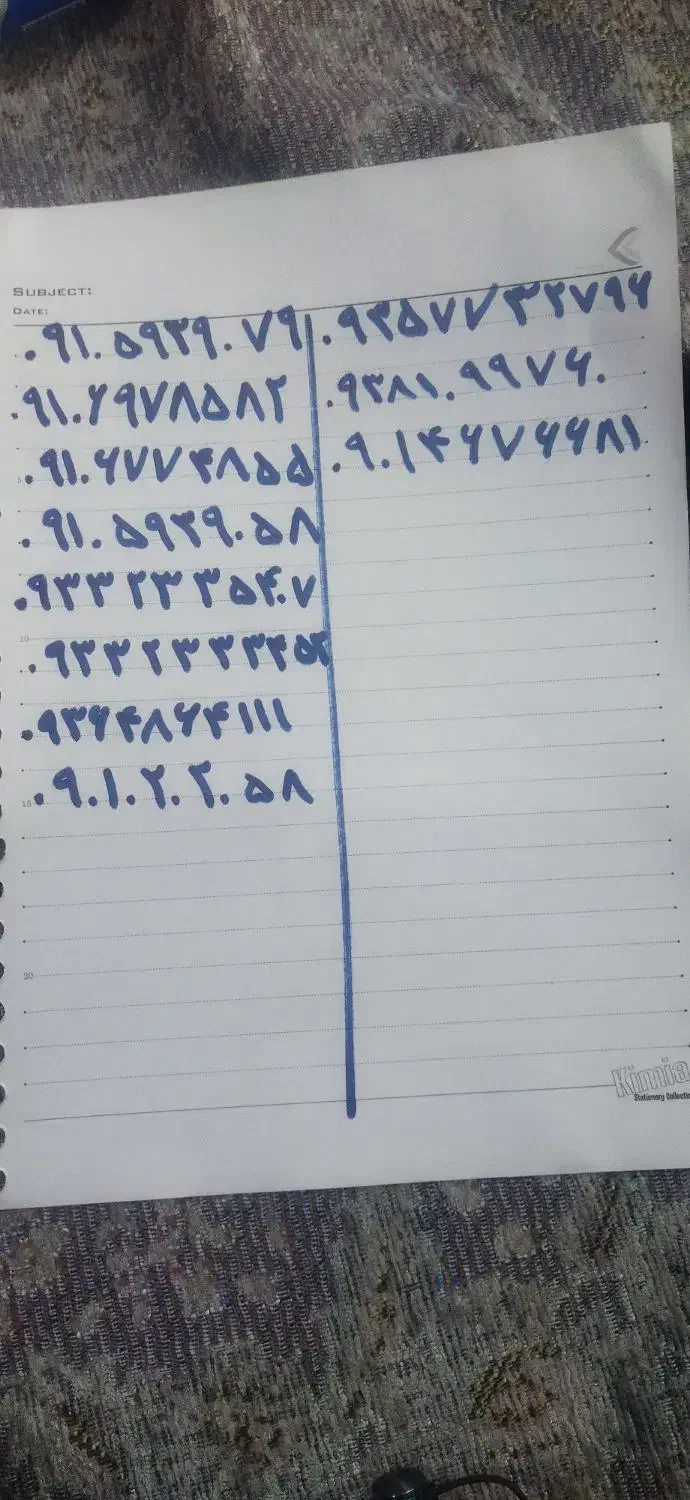 SUBJECT:
DATE:
۰۹۱۰۵۹۳۹۰۷۹
۰۹۱۰۶۹۷۸۵۸۲
۰۹۱۰۶۷۷۴۸۵۵
۰۹۱۰۵۹۳۹۰۵۸
۰۹۳۳۲۳۳۵۴۰۷
۰۹۳۶۴۸۶۴۱۱۱
۰۹۰۱۰۲۰۲۰۵۸
۰۹۳۵۷۷۳۲۷۹۶
۰۹۳۸۱۰۹۹۷۶۰
۰۹۰۱۴۶۷۶۶۸۱
5
10
15
20
Kimia
Stationery Collection